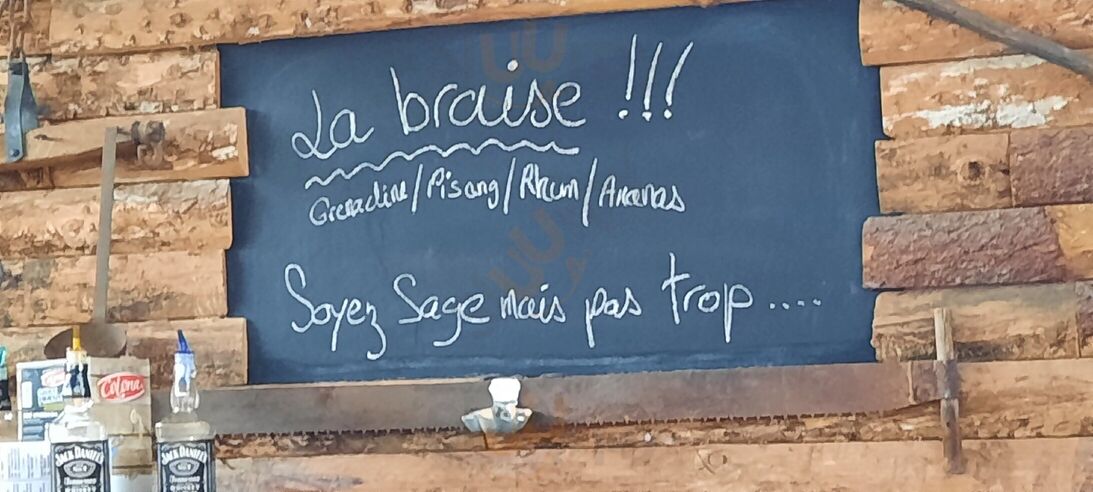 La braise !!!
Grenadine/Pisang/Rhum/Ananas
Soyez Sage mais pas trop ....
Colona
JACK DANIEL'S
JACK DANIEL'S